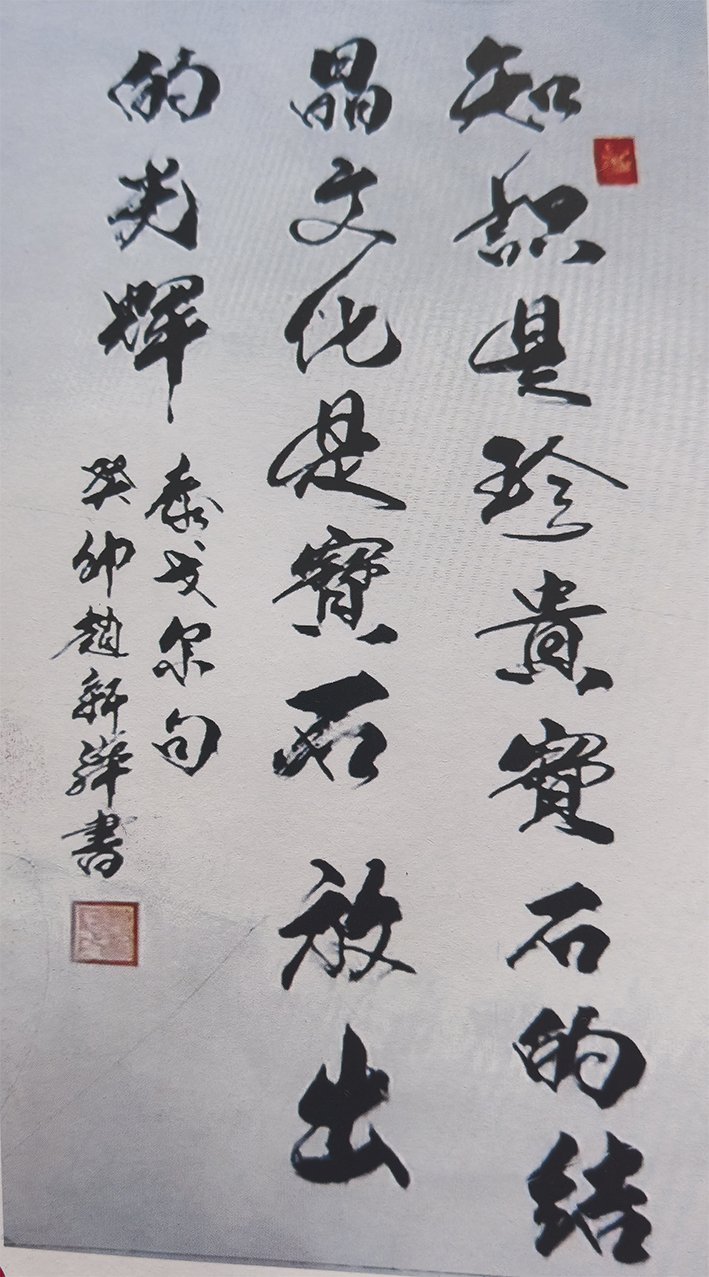 知識是珍貴寶石的結
晶文化是寶石放出
的光輝
泰戈尔句
癸卯趙新萍書